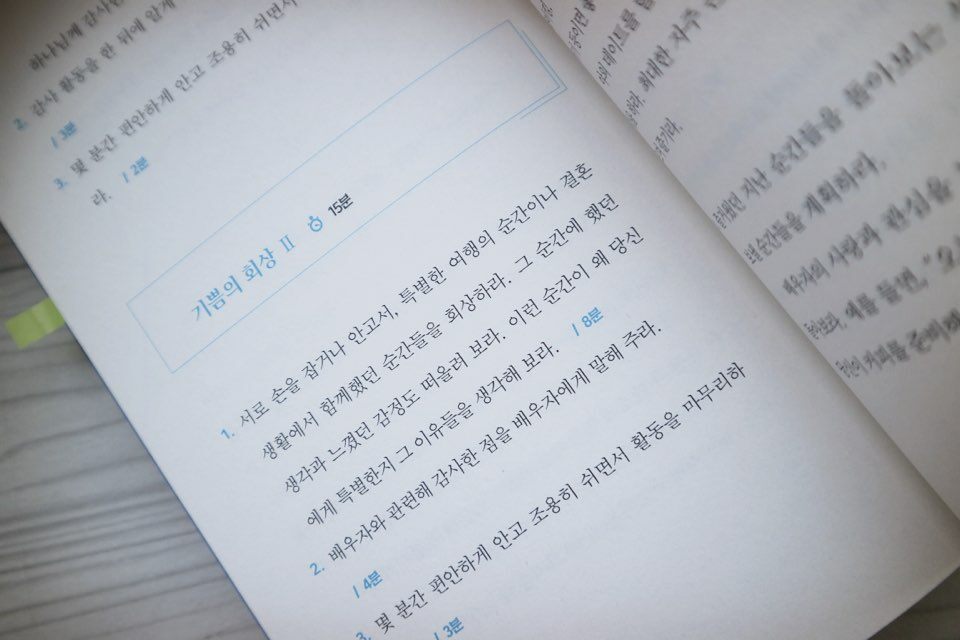 하나님께 감사한
2. 감사 활동을 한 뒤에 앞에
/ 3분
3. 몇 분간 편안하게 안고 조용히 쉬면서
라. / 2분
기쁨의 회상 II 15분
1. 서로 손을 잡거나 안고서, 특별한 여행의 순간이나 결혼
생활에서 함께했던 순간들을 회상하라. 그 순간에 했던
생각과 느꼈던 감정도 떠올려 보라. 이런 순간이 왜 당신
에게 특별한지 그 이유들을 생각해 보라. / 8분
2. 배우자와 관련해 감사한 점을 배우자에게 말해 주라.
/ 4분
3. 몇 분간 편안하게 안고 조용히 쉬면서 활동을 마무리하
/ 3분
데이트를
최대한 자주
즐기라.
지난 순간들을 돌아보는
순간들을 계획하라.
배우자의 사랑과 관심을
돌아보라. 예를 들면, "오
커피를 준비해